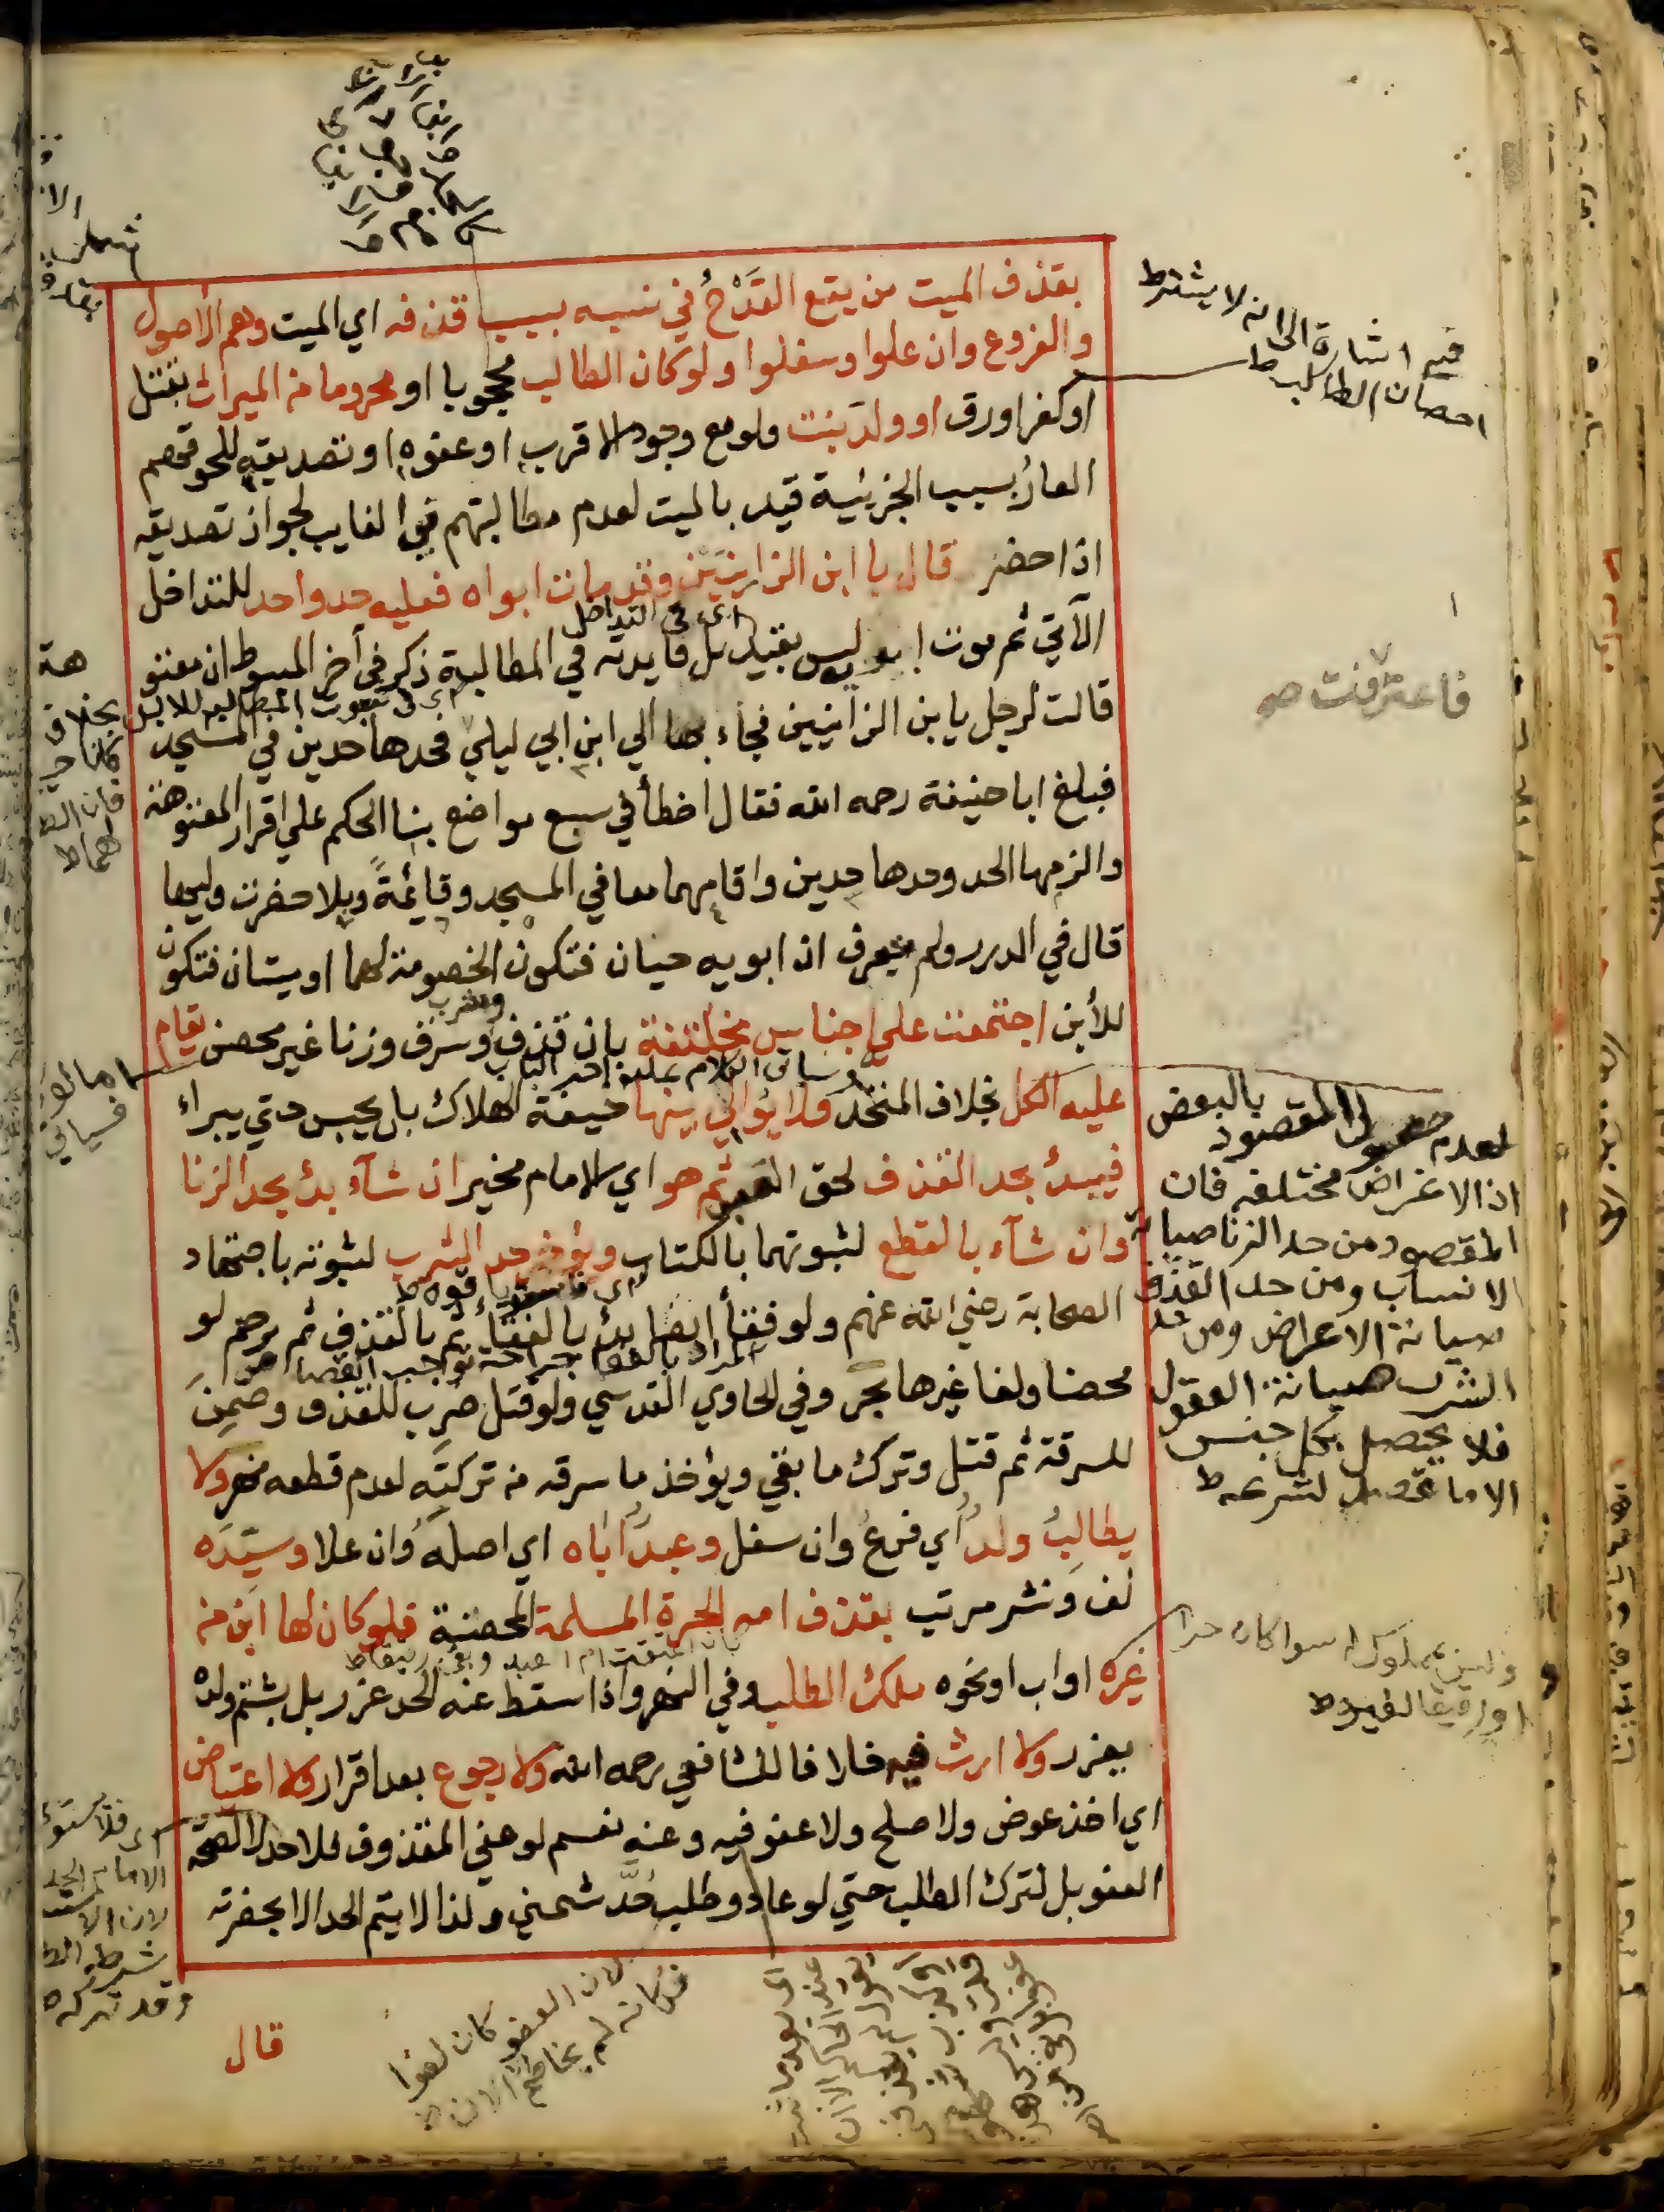 بقذف الميت من يقع القَدْحُ في نسبه بسبب قذفه اي الميت وهم الأصول
والفروع وان علوا وسفلوا ولو كان الطالب محجوبا او محروما من الميراث بقتل
او كفر او رق او ولد بنت ولو مع وجود الاقرب او عفوه او تصديقه للحوقهم
العارُ بسبب الجزئية قيد بالميت لعدم مطالبتهم في الغايب لجواز تصديقه
اذا حضر قال يا ابن الزانيَيْن وقد مات ابواه فعليه حد واحد للتداخل
اي في التداخل
الآتي ثم موت ابويه ليس بقيد بل فايدته في المطالبة ذكر في أخر المبسوط ان معتو
هة
اي في ثبوت المطالبة للابن بخلاف
قالت لرجل يا بن الزانيين فجاء بها الي ابن ابي ليلي فحدها حدين في المسجد
فبلغ ابا حنيفة رحمه الله فقال اخطأ في سبع مواضع بنا الحكم علي اقرار المعتوهة
والزمها الحد وحدها حدين واقامهما معا في المسجد وقايمَةً وبلا حضرت وليها
قال في الدرر ولم يعرف ان ابويه حيان فتكون الخصومة لهما او ميتان فتكون
للأبن اجتمعت علي اجناس مختلفة بان قذف وسرق وزنا غير محصن يقام
وشرب
عليه الكل بخلاف المتحد ولا يوالي بينها خيفة الهلاك بل يحبس حتي يبراء
فيبدئ بحد القذف لحق العبد ثم هو اي الامام مخير ان شآء بدئ بحد الزنا
وان شآء بالقطع لثبوتهما بالكتاب ويؤخر حد الشرب لثبوته باجتهاد
الصحابة رضي الله عنهم ولو فقأ ايضا بدئ بالفقاء ثم بالقذف ثم يرجم لو
محصنا ولغا غيرها بحر وفي الحاوي القدسي ولو قتل ضُرِب للقذف وضمِنَ
للسرقة ثم قتل وترك ما بقي ويؤخذ ما سرقه من تركتِه لعدم قطعه نهر ولا
يطالبُ ولدٌ أي فرعٌ وان سفل وعبدٌ أباه اي اصلَهُ وان علا وسيّدَه
لف ونشر مرتب بقذف امه الحرة المسلمة المحصنة فلو كان لها ابن من
غيره او اب او نحوه ملك الطلب وفي النهر واذا سقط عنه الحد عزر بل بشتم ولده
يعزر ولا ارث فيه خلافا للشافعي رحمه الله ولا رجوع بعد اقرار ولا اعتياض
اي اخذ عوض ولا صلح ولا عفو فيه وعنه نعم لو عفي المقذوف فلا حد لا لصحة
العفو بل لترك الطلب حتي لو عاد وطلب حُدَّ شمني ولذا لا يتم الحد الا بحضرته
قال
فيه اشارة الى انه لا يشترط
احصان الطالب ط
فاعترفت صح
لعدم حصول المقصود بالبعض
اذ الاغراض مختلفه فان
المقصود من حد الزنا صيانة
الانساب ومن حد القذف
صيانة الاعراض ومن حد
الشرب صيانة العقول
فلا يحصل بكل جنس
الا ما قصد لشرعه ط
وليس بمملوك له سوا كان حرا
او رقيقا لغيره ط
لان العفو كان لغوا
فكانه لم يخاصم الى الان ط